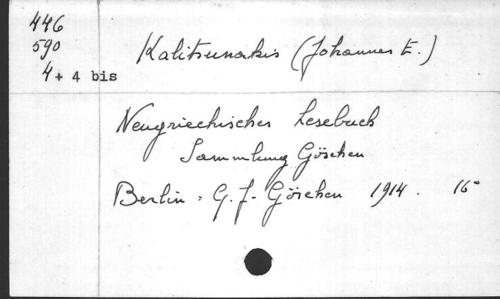 446
590
4 + 4 bis
Kalitsunakis (Johannes E.)
Neugriechisches Lesebuch
Sammlung Göschen
Berlin : G. J. Göschen 1914. 16°